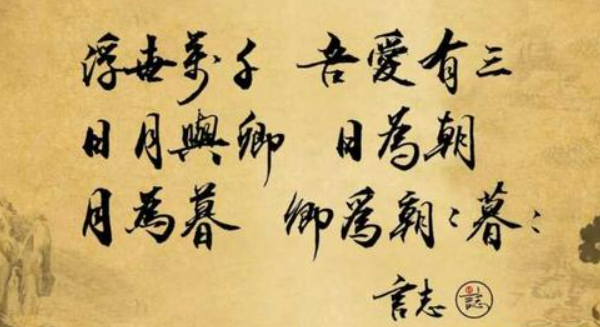 浮世萬千 吾愛有三
日月與卿 日為朝
月為暮 卿為朝〻暮〻
言志